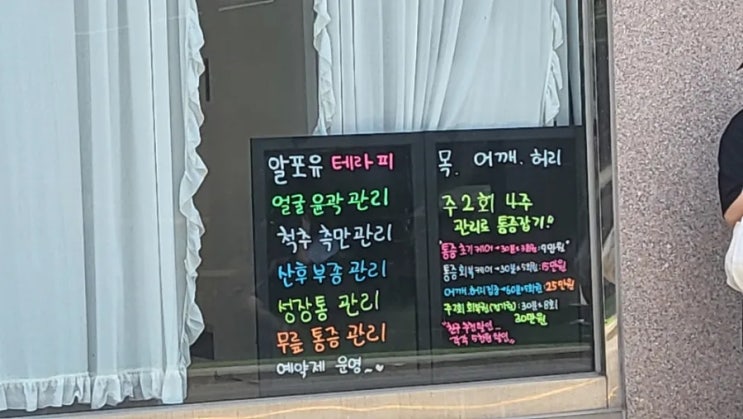 알포유 테라피
얼굴 윤곽 관리
척추 측만관리
산후 부종 관리
성장통 관리
무릎 통증 관리
예약제 운영~
목. 어깨. 허리
주 2회 4주
관리로 통증잡기!
"통증 초기 케어→30분x3회권: 9만원"
통증 회복 케어→30분x5회권: 15만원
어깨.허리 집중→60분x5회권 25만원
주2회 회복권(정기권): 30분x8회
30만원
"친구 추천 할인
각각 5천원 할인